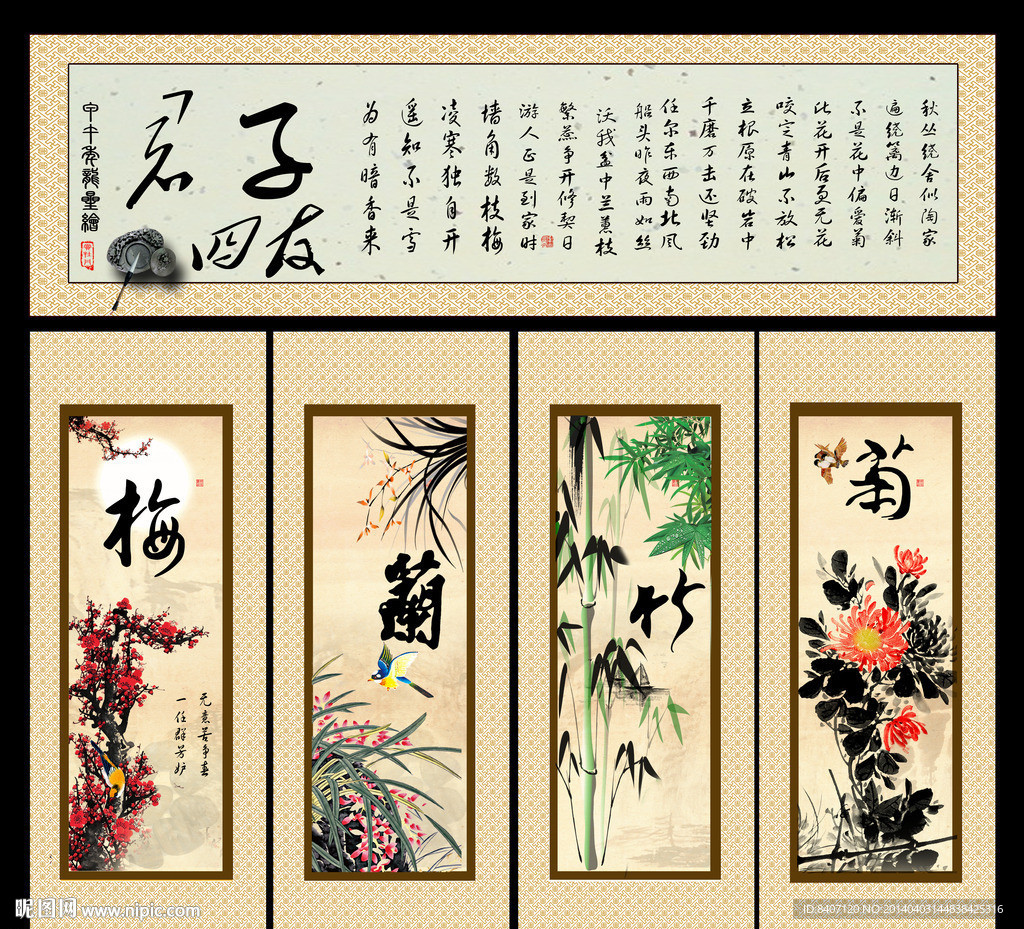 秋丛绕舍似陶家
遍绕篱边日渐斜
不是花中偏爱菊
此花开后更无花
咬定青山不放松
立根原在破岩中
千磨万击还坚劲
任尔东西南北风
船头昨夜雨如丝
沃我盆中兰蕙枝
繁蕊争开修契日
游人正是到家时
墙角数枝梅
凌寒独自开
遥知不是雪
为有暗香来
君子
四友
甲午年龍繪
梅
无意苦争春
一任群芳妒
蘭
竹
菊
昵图网 www.nipic.com
ID:8407120 NO:20140403144838425316